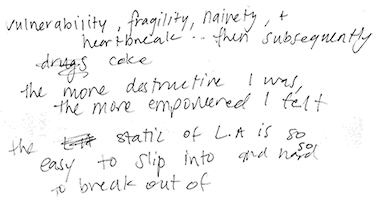 vulnerability, fragility, naivety, +
heartbreak.. then subsequently
drugs coke
the more destructive I was,
the more empowered I felt
the static of L.A is so
easy to slip into and so hard
to break out of